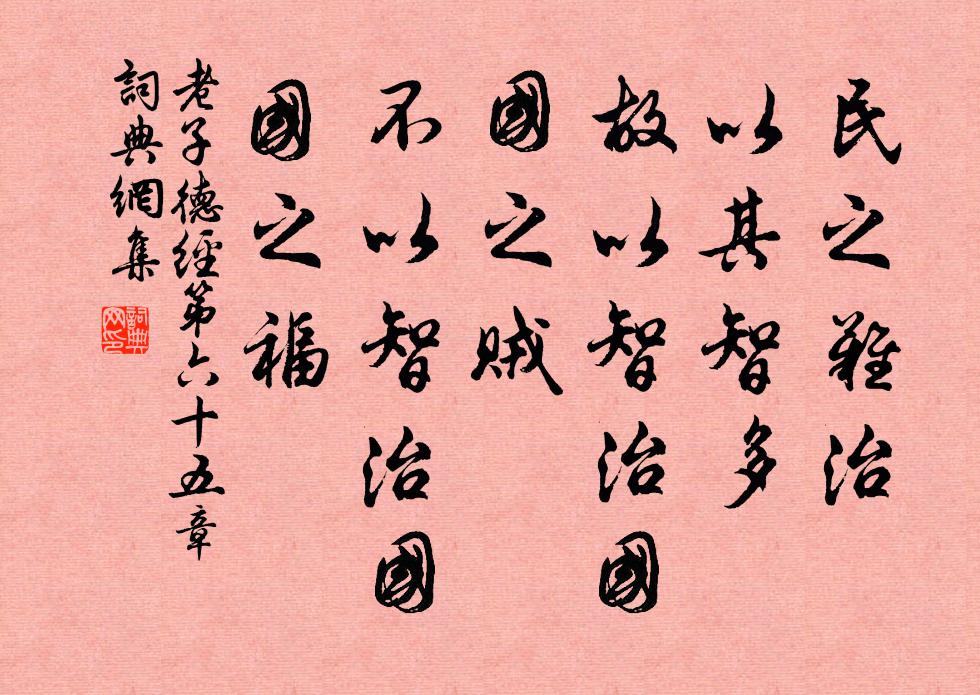 民之難治
以其智多
故以智治國
國之賊
不以智治國
國之福
老子德經第六十五章
詞典網集
詞典網印